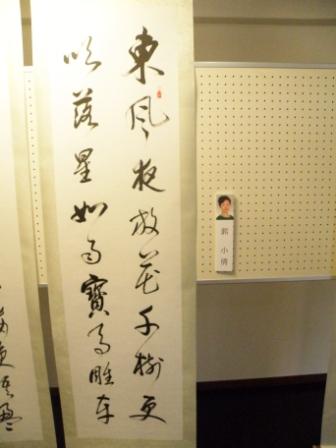 東風夜放花千樹更
吹落星如雨寶馬雕車
郭小倩